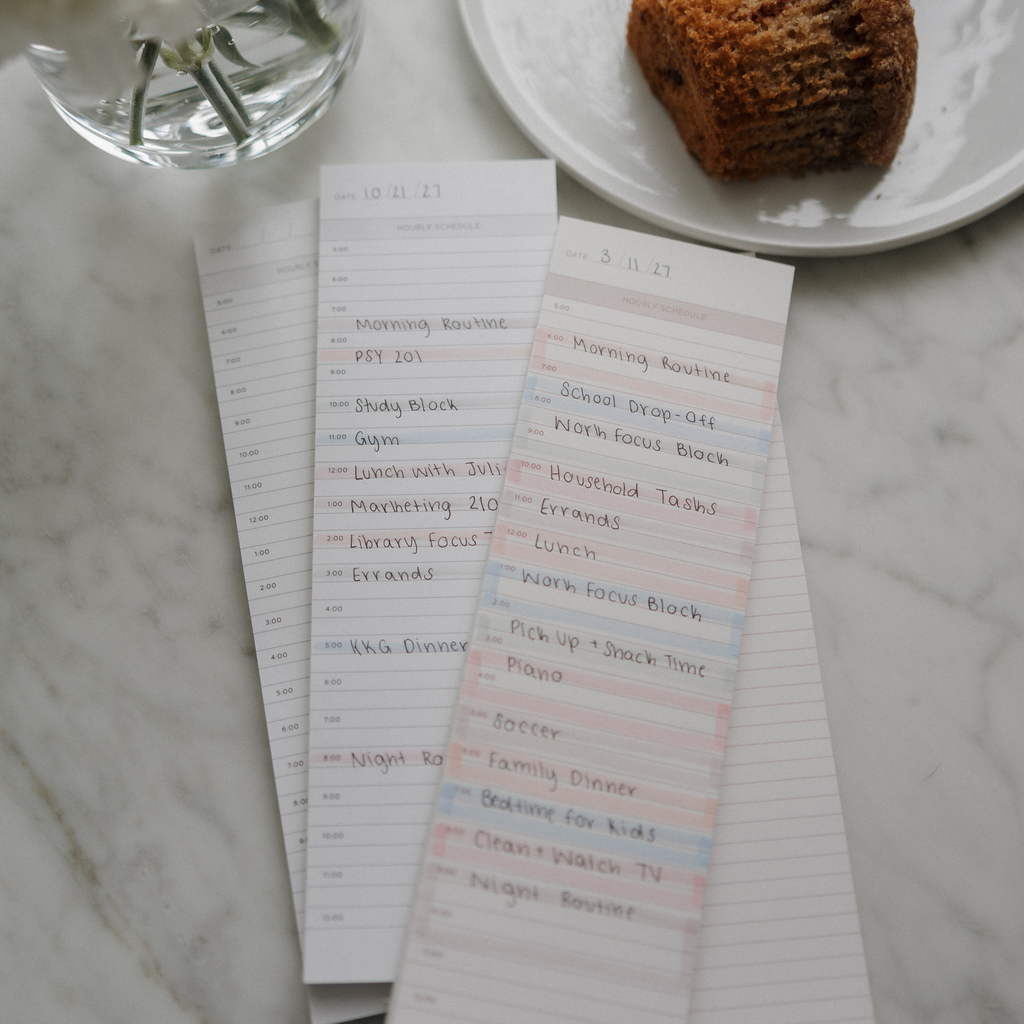 DATE
HOURLY S
5:00
6:00
7:00
8:00
9:00
10:00
11:00
12:00
1:00
2:00
3:00
4:00
5:00
6:00
7:00
8:00
DATE 10/21/27
HOURLY SCHEDULE
5:00
6:00
7:00
Morning Routine
8:00
PSY 201
9:00
10:00 Study Block
11:00 Gym
12:00 Lunch with Juli
1:00 Marketing 210
2:00 Library Focus
3:00 Errands
4:00
5:00 KKG Dinner
6:00
7:00
8:00 Night Ro
9:00
10:00
11:00
12:00
DATE 3/11/27
HOURLY SCHEDULE
5:00
6:00 Morning Routine
7:00
School Drop-Off
8:00
9:00 Work Focus Block
10:00 Household Tasks
11:00 Errands
12:00 Lunch
1:00 Work Focus Block
2:00
3:00 Pick Up + Snack Time
Piano
4:00
5:00 Soccer
6:00 Family Dinner
7:00 Bedtime for Kids
8:00 Clean + Watch TV
9:00 Night Routine
10:00